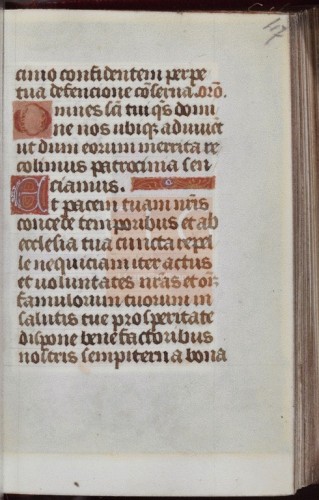 117
cinio confidentem perpe
tua defencione cōserua. orō.
Omnes sācti tui q̄s domi
ne nos ubiq; adiuuēt
ut dum eorum merita re
colimus patrocinia sen
ciamus.
Et pacem tuam nr̄is
concede temporibus et ab
ecclesia tua cuncta repel
le nequiciam iter actus
et voluntates nr̄as et oīz
famulorum tuorum in
salutis tue prosperitate
dispone benefactoribus
nostris sempiterna bona